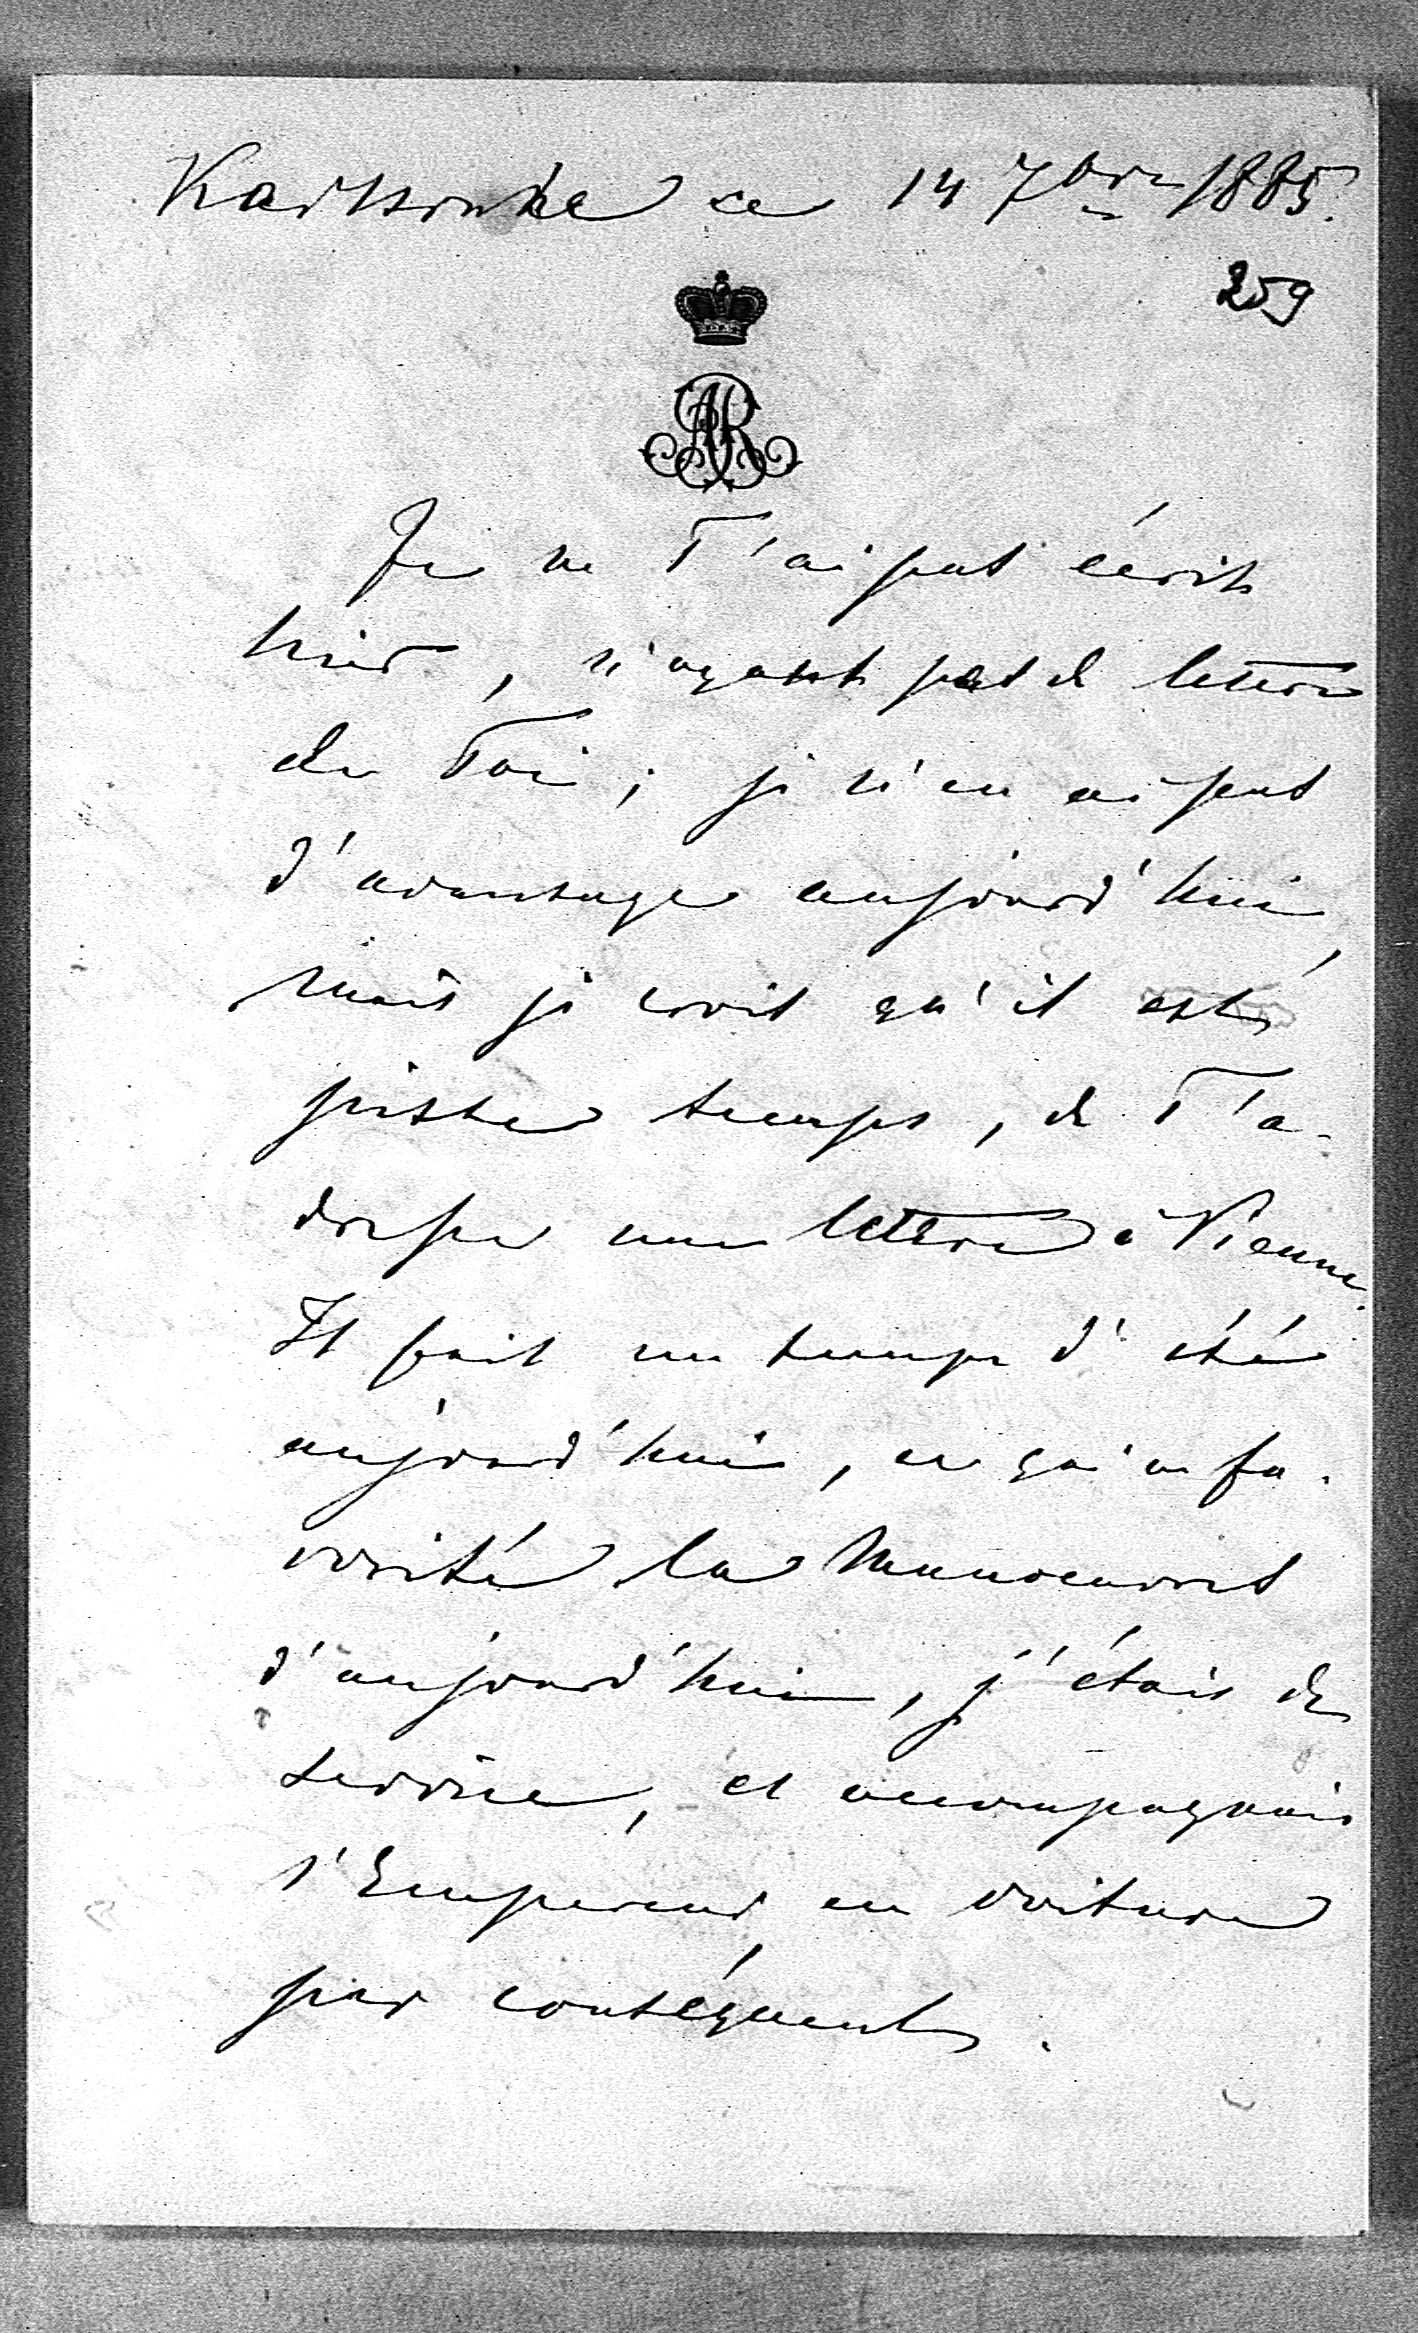 Karlsruhe ce 14 7bre 1885.
259
AR
Je ne T'ai pas écrit
hier, n'ayant pas de lettre
de Toi; je n'en ai pas
d'avantage aujourd'hui,
mais je crois qu'il est
juste temps, de T'a-
dresser une lettre à Vienne.
Il fait un temps d'été
aujourd'hui, ce qui a fa-
vorisé les manoeuvres
d'aujourd'hui, j'étais de
service, et accompagnais
l'Empereur, en voiture
par conséquent.